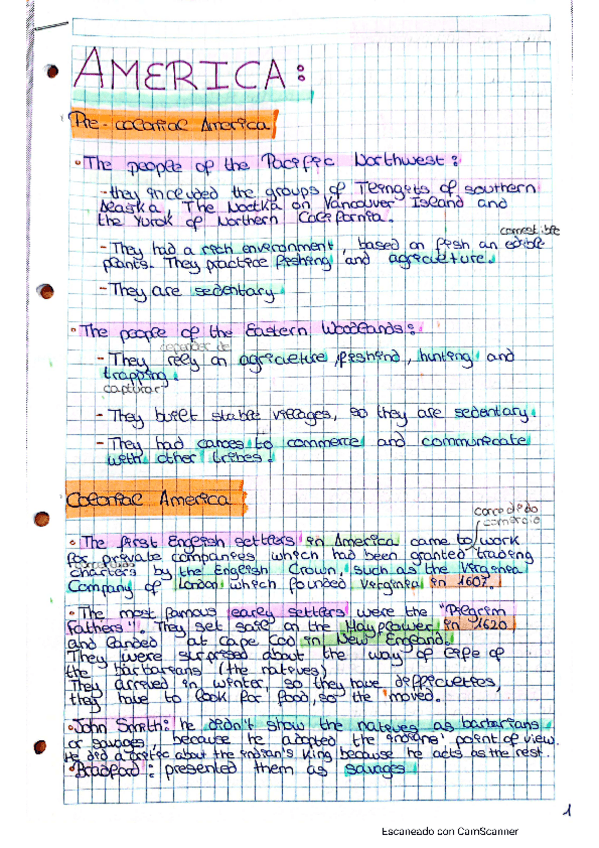 AMERICA:
Pre-colonial America
• The people of the Pacific Northwest:
- they included the groups of Terngets of southern
Alaska. The Nootka on Vancouver Island and
the Yurok of Northern California.
comestible
- They had a rich environment, based on fish an edible
plants. They practice fishing and agriculture.
- They are sedentary
• The people of the Eastern Woodlands:
depender de
- They rely on agriculture, fishind, hunting and
trapping.
capturar
- They built stable villages, so they are sedentary.
- They had canoes to commerce and communicate
with other tribes.
Colonial America
concedido
comercio
• The first English settlers in America came to work
for private companies which had been granted trading
charters by the English Crown, such as the Virginia
Company of London which founded Virginia in 1607.
• The most famous early settlers were the "Pilgrim
Fathers". They set sail on the Mayflower in 1620
and landed at Cape Cod in New England.
They were surprised about the way of life of
the barbarians (the natives)
They arrived in winter, so they have difficulties,
they have to look for food, so the moved.
• John Smith: he didn't show the natives as barbarians
or savages, because he adopted the indians' point of view.
He did a profile about the indian's king because he acts as the rest.
• Bradford: presented them as savages
1
Escaneado con CamScanner